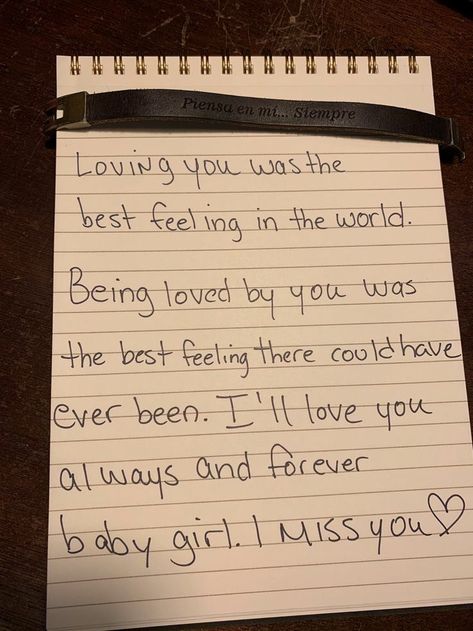 Piensa en mi... Siempre
Loving you was the
best feeling in the world.
Being loved by you was
the best feeling there could have
ever been. I'll love you
always and forever
baby girl. I miss you♡